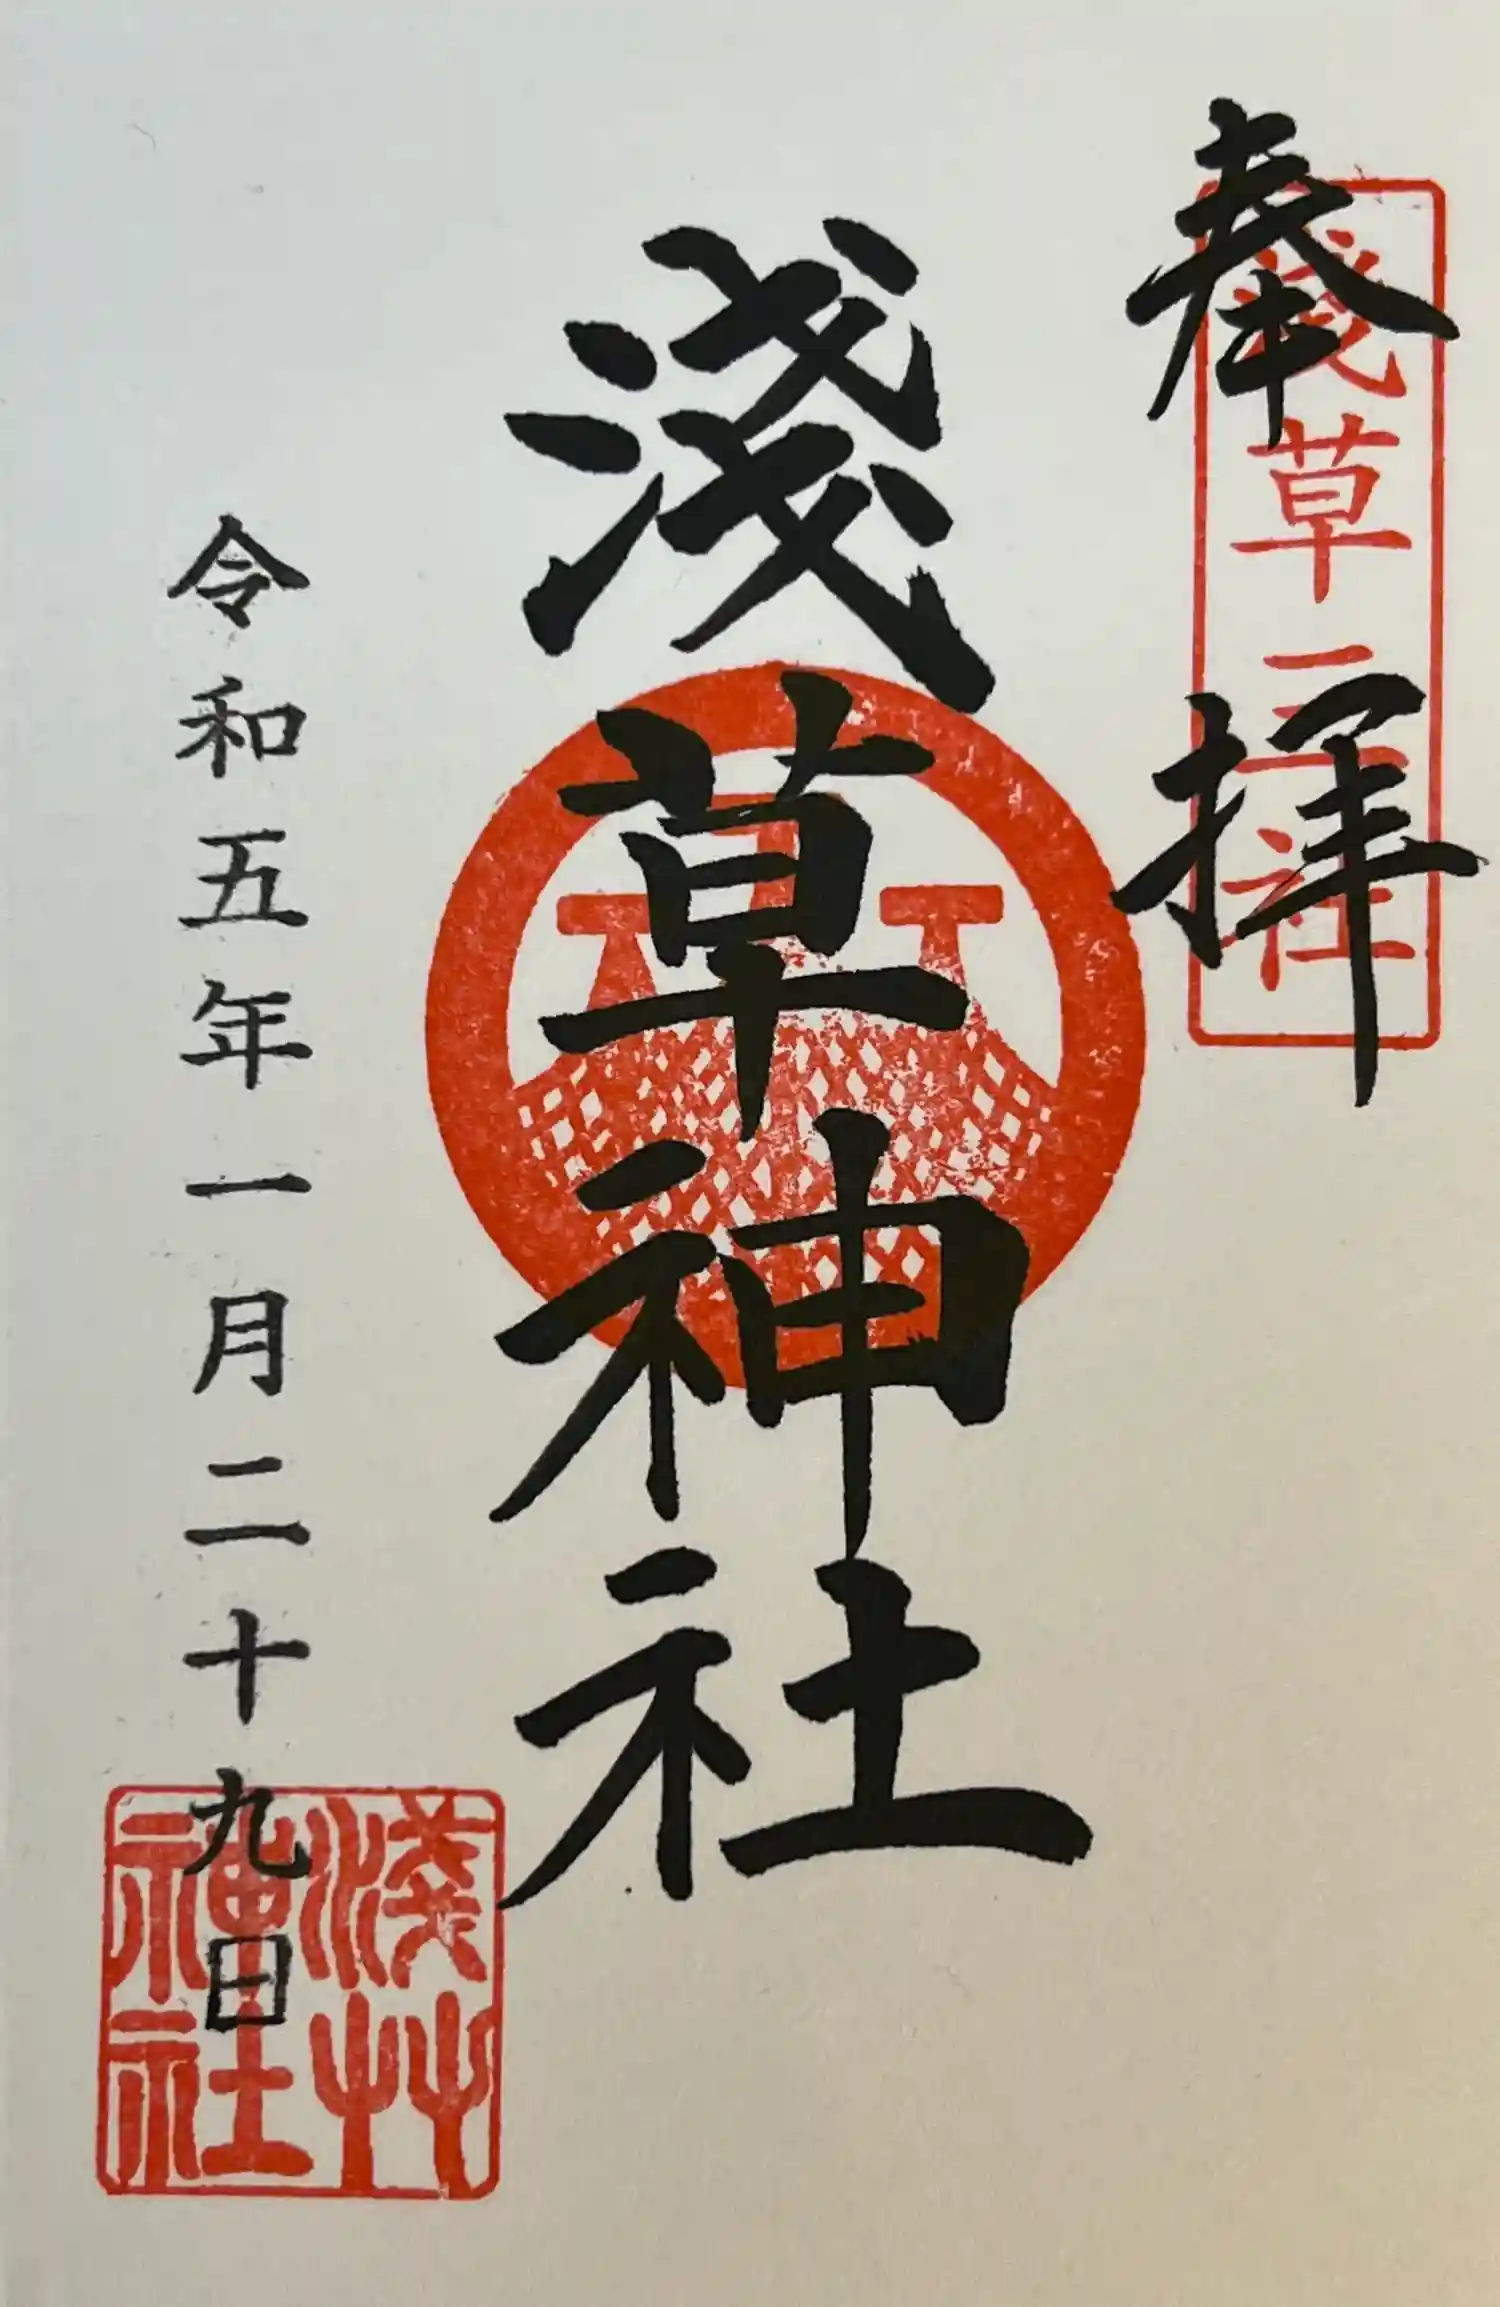 奉拝
淺草三社
淺草神社
令和五年一月二十九日
淺草神社